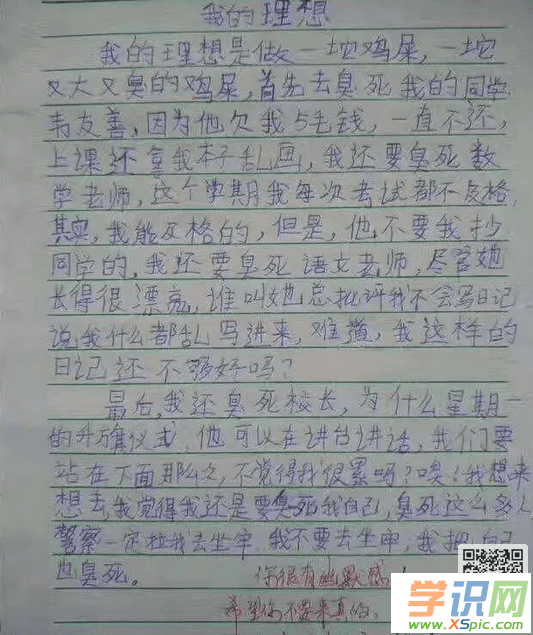 我的理想
我的理想是做一坨鸡屎,一坨
又大又臭的鸡屎,首先去臭死我的同学
韦友善,因为他欠我5毛钱,一直不还,
上课还拿我本子乱画,我还要臭死数
学老师,这个学期我每次考试都不及格,
其实,我能及格的,但是,他不要我抄
同学的,我还要臭死语文老师,尽管她
长得很漂亮,谁叫她总批评我不会写日记
说我什么都乱写进来,难道,我这样的
日记还不够好吗?
最后,我还臭死校长,为什么星期一
的升旗仪式,他可以在讲台讲话,我们要
站在下面那么久,不觉得我很累吗?唉!我想来
想去,我觉得我还是要臭死我自己,臭死这么多人
警察一定拉我去坐牢,我不要去坐牢,我把自己
也臭死。
你很有幽默感!
希望你不要来真的。
学识网
www.XSpic.com